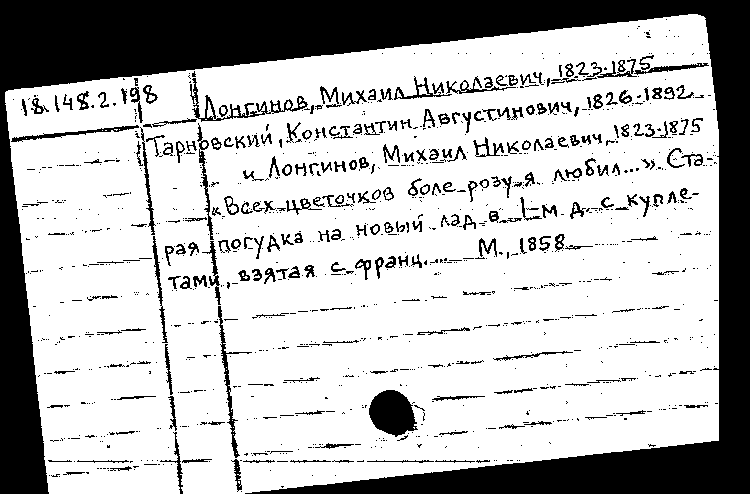 18.148.2.198
Лонгинов, Михаил Николаевич, 1823-1875
Тарновский, Константин Августинович, 1826-1892
и Лонгинов, Михаил Николаевич, 1823-1875
«Всех цветочков боле розу я любил...» Ста-
рая погудка на новый лад в 1-м д. с купле-
тами, взятая с франц.... М., 1858